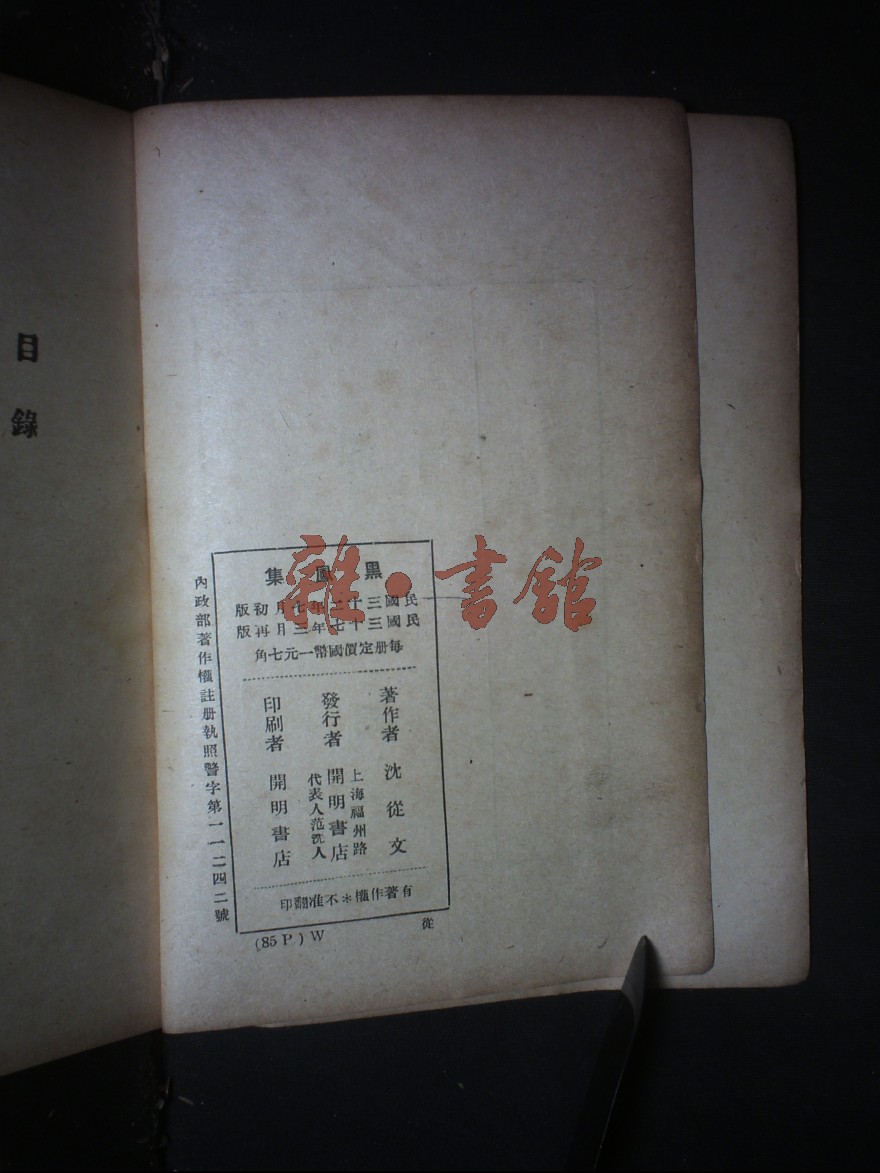 目錄
雜·書館
黑鳳集
民國三十二年七月初版
民國三十七年三月再版
每册定價國幣一元七角
著作者 沈從文
發行者 上海福州路
開明書店
代表人范洗人
印刷者 開明書店
有著作權＊不准翻印
內政部著作權註册執照警字第一一二四二號
(85 P.) W 從